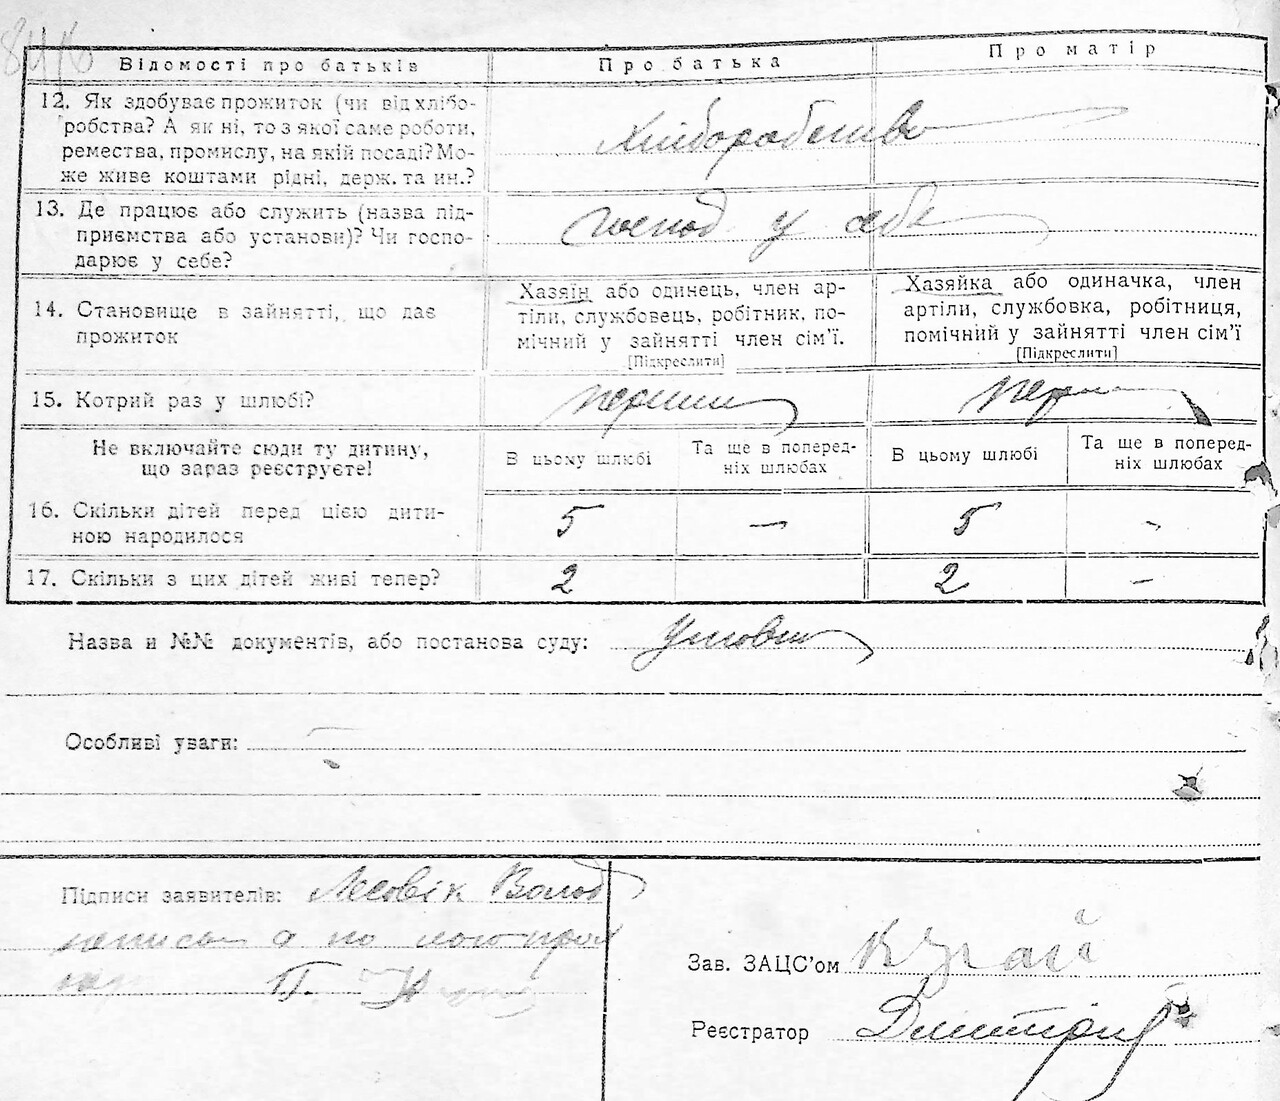 Відомості про батьків
Про батька
Про матір
12. Як здобуває прожиток (чи від хлібо-
робства? А як ні, то з якої саме роботи,
ремества, промислу, на якій посаді? Мо-
же живе коштами рідні, держ. та ин.?
Хліборобство
13. Де працює або служить (назва під-
приємства або установи)? Чи госпо-
дарює у себе?
господ у себе
14. Становище в зайнятті, що дає
прожиток
Хазяїн або одинець, член ар-
тіли, службовець, робітник, по-
мічний у зайнятті член сім'ї.
[Підкреслити]
Хазяйка або одиначка, член
артіли, службовка, робітниця,
помічний у зайнятті член сім'ї
[Підкреслити]
15. Котрий раз у шлюбі?
перший
перш
Не включайте сюди ту дитину,
що зараз реєструєте!
В цьому шлюбі
Та ще в поперед-
ніх шлюбах
В цьому шлюбі
Та ще в поперед-
ніх шлюбах
16. Скільки дітей перед цією дити-
ною народилося
5 — 5 -
17. Скільки з цих дітей живі тепер?
2 2 —
Назва и №№ документів, або постанова суду:
Особливі уваги:
Підписи заявителів: Лесовік Волод
а по його
П.
Зав. ЗАЦС'ом
Реєстратор